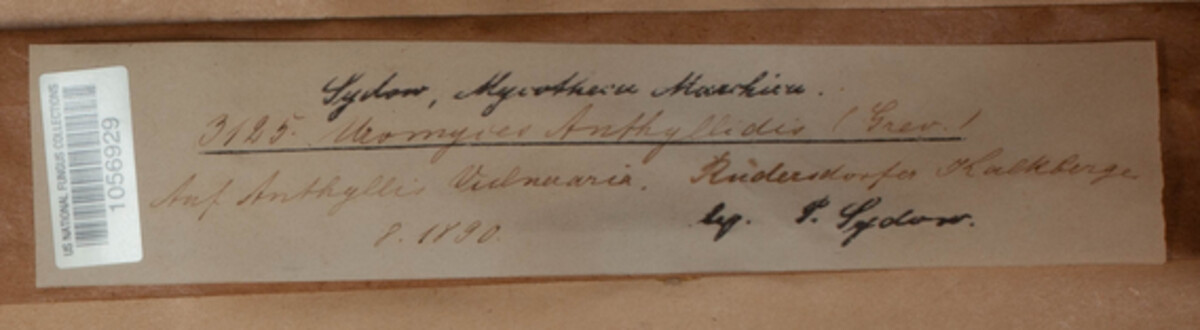 US NATIONAL FUNGUS COLLECTIONS
1056929
Sydow, Mycotheca Marchica.
3125. Uromyces Anthyllidis (Grev.)
Auf Anthyllis Vulneraria. Rüdersdorfer Kalkberge
8. 1890.
leg. P. Sydow.